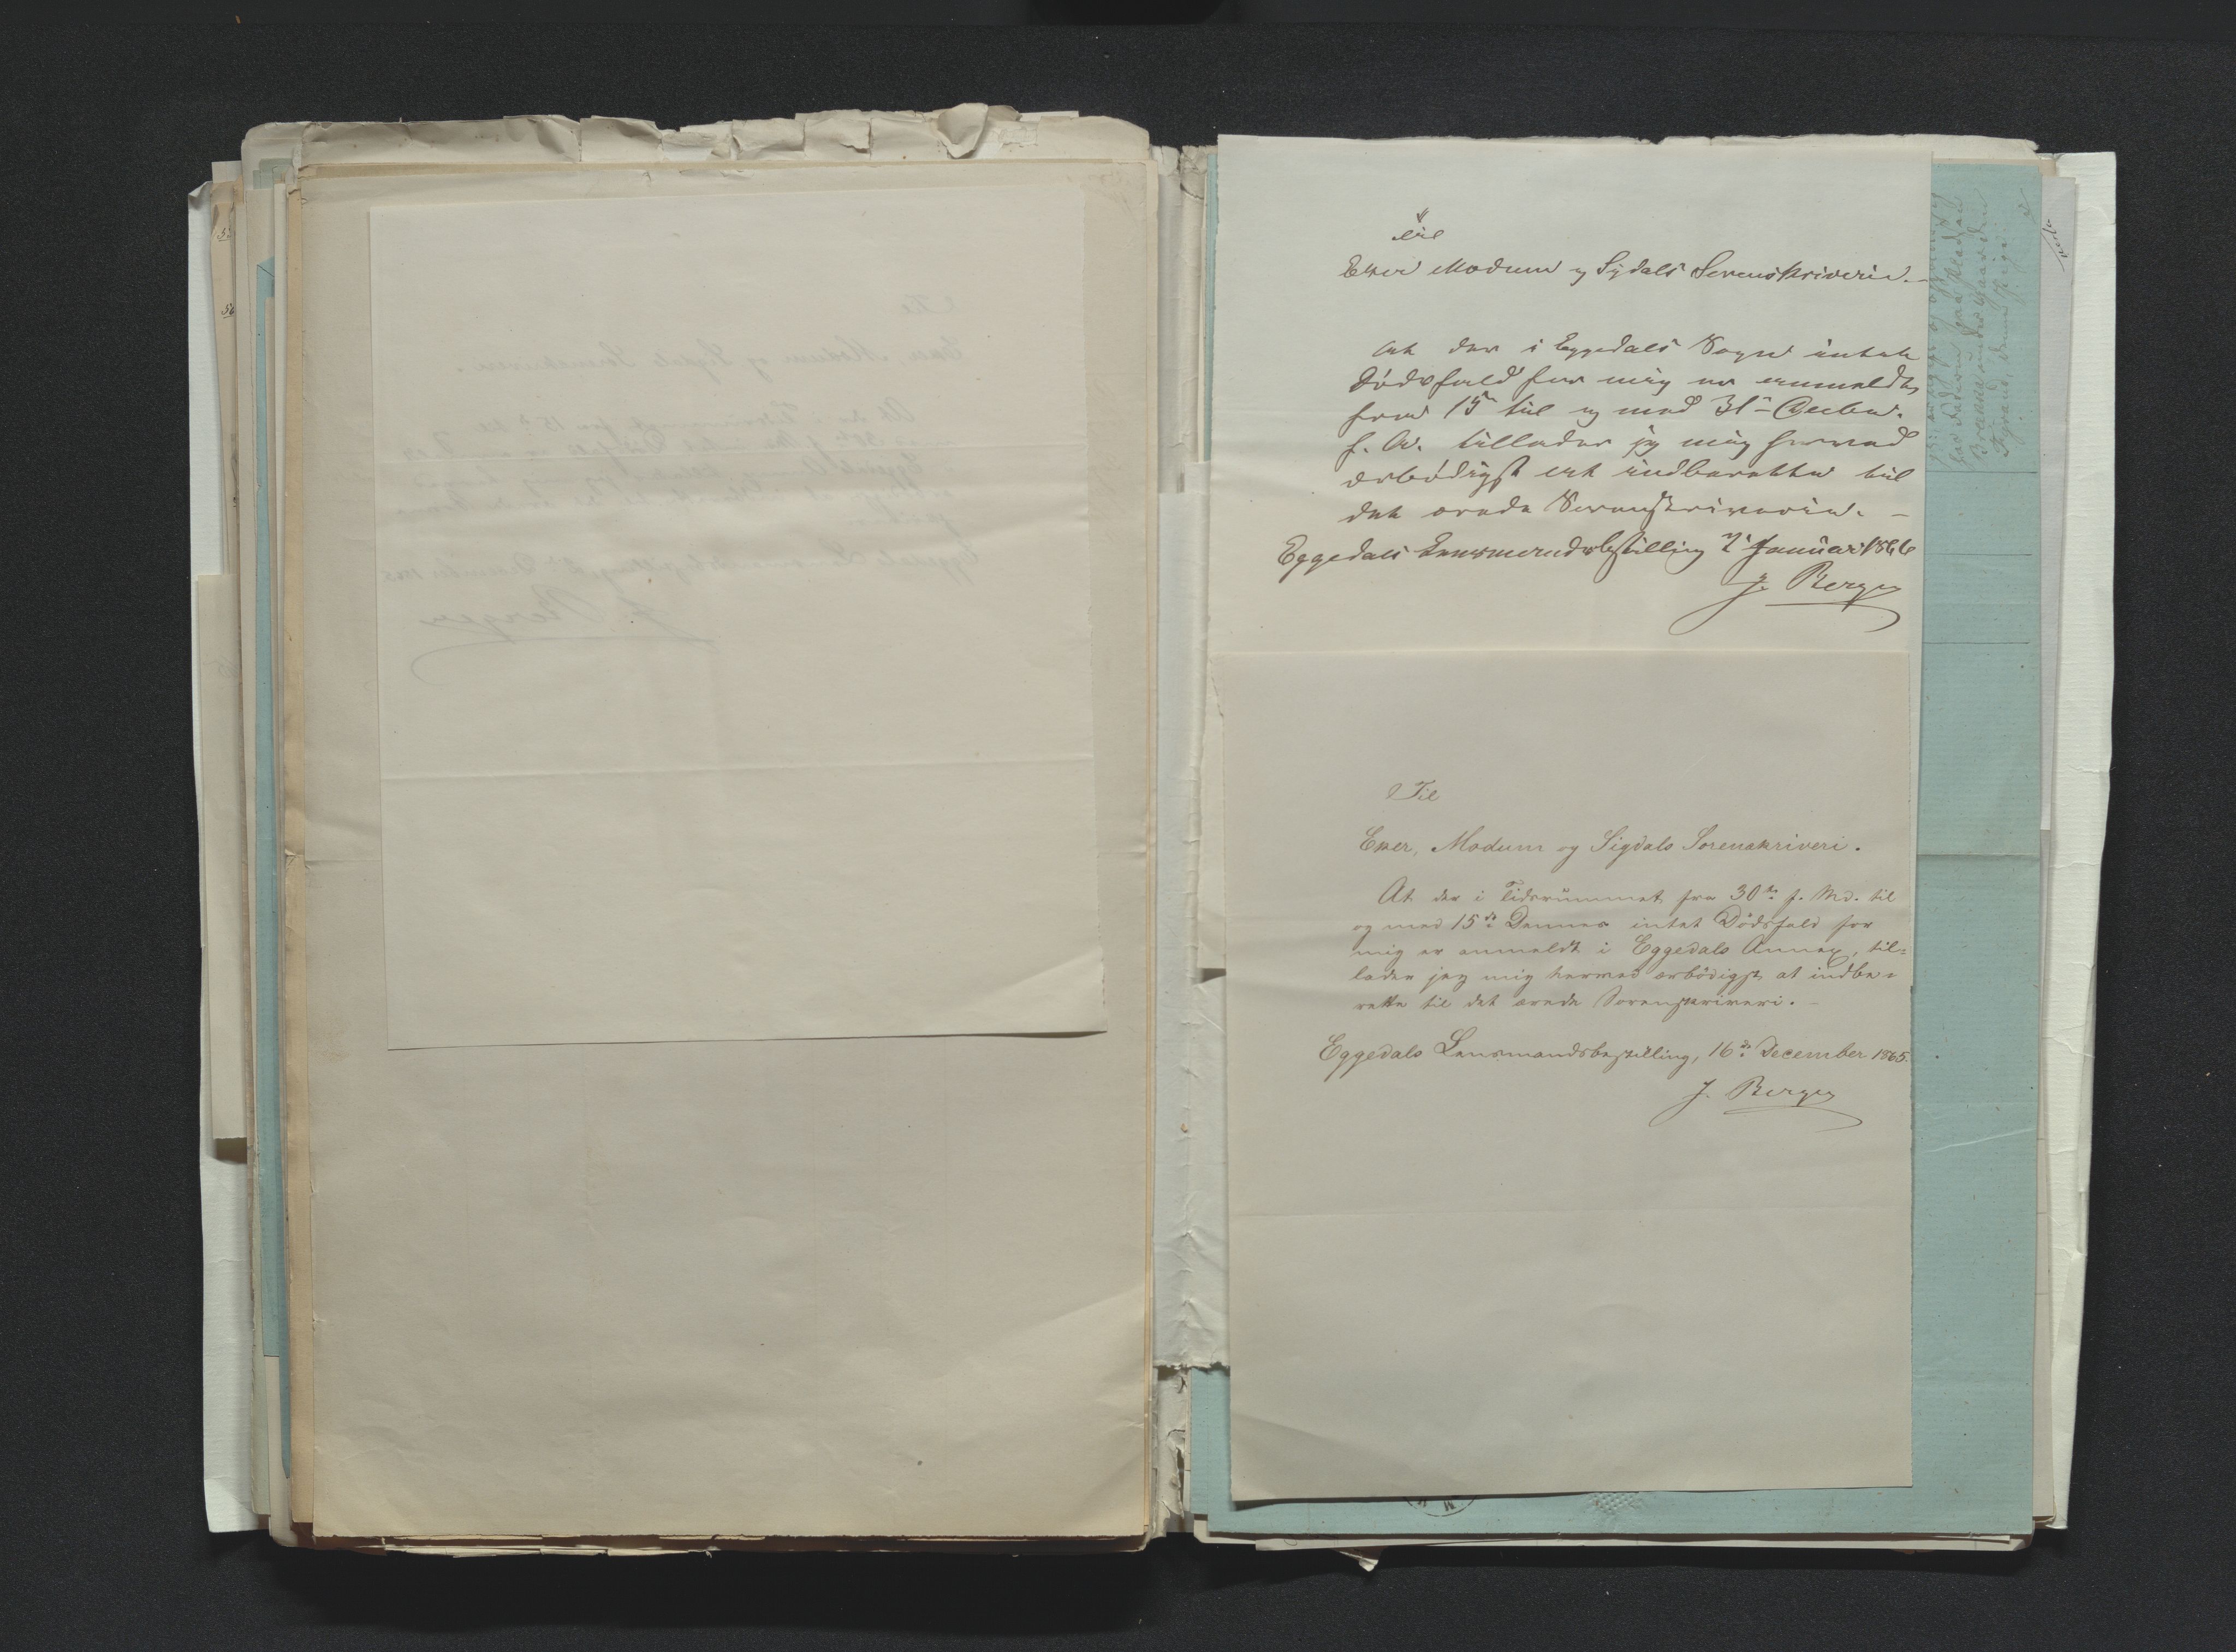 Til
Eker Modum og Sigdals Sorenskriveri.
At der i Eggedals Sogn intet
Dødsfald for mig er anmeldt,
fra 15de til og med 31te Decbr.
f. A. tillader jeg mig herved
ærbødigst at indberette til
det ærede Sorenskriveri. –
Eggedals Lensmandsbestilling 2 Januar 1866
J. Bergan
Til
Eker, Modum og Sigdals Sorenskriveri.
At der i Tidsrummet fra 30te f. Md. til
og med 15de Dennes intet Dødsfald for
mig er anmeldt i Eggedals Annex, til=
lader jeg mig herved ærbødigst at indbe=
rette til det ærede Sorenskriveri. –
Eggedals Lensmandsbestilling, 16de December 1865.
J. Bergan